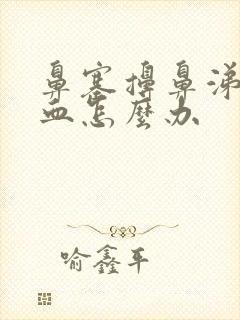 鼻塞擤鼻涕
血怎麼办
喻鑫平